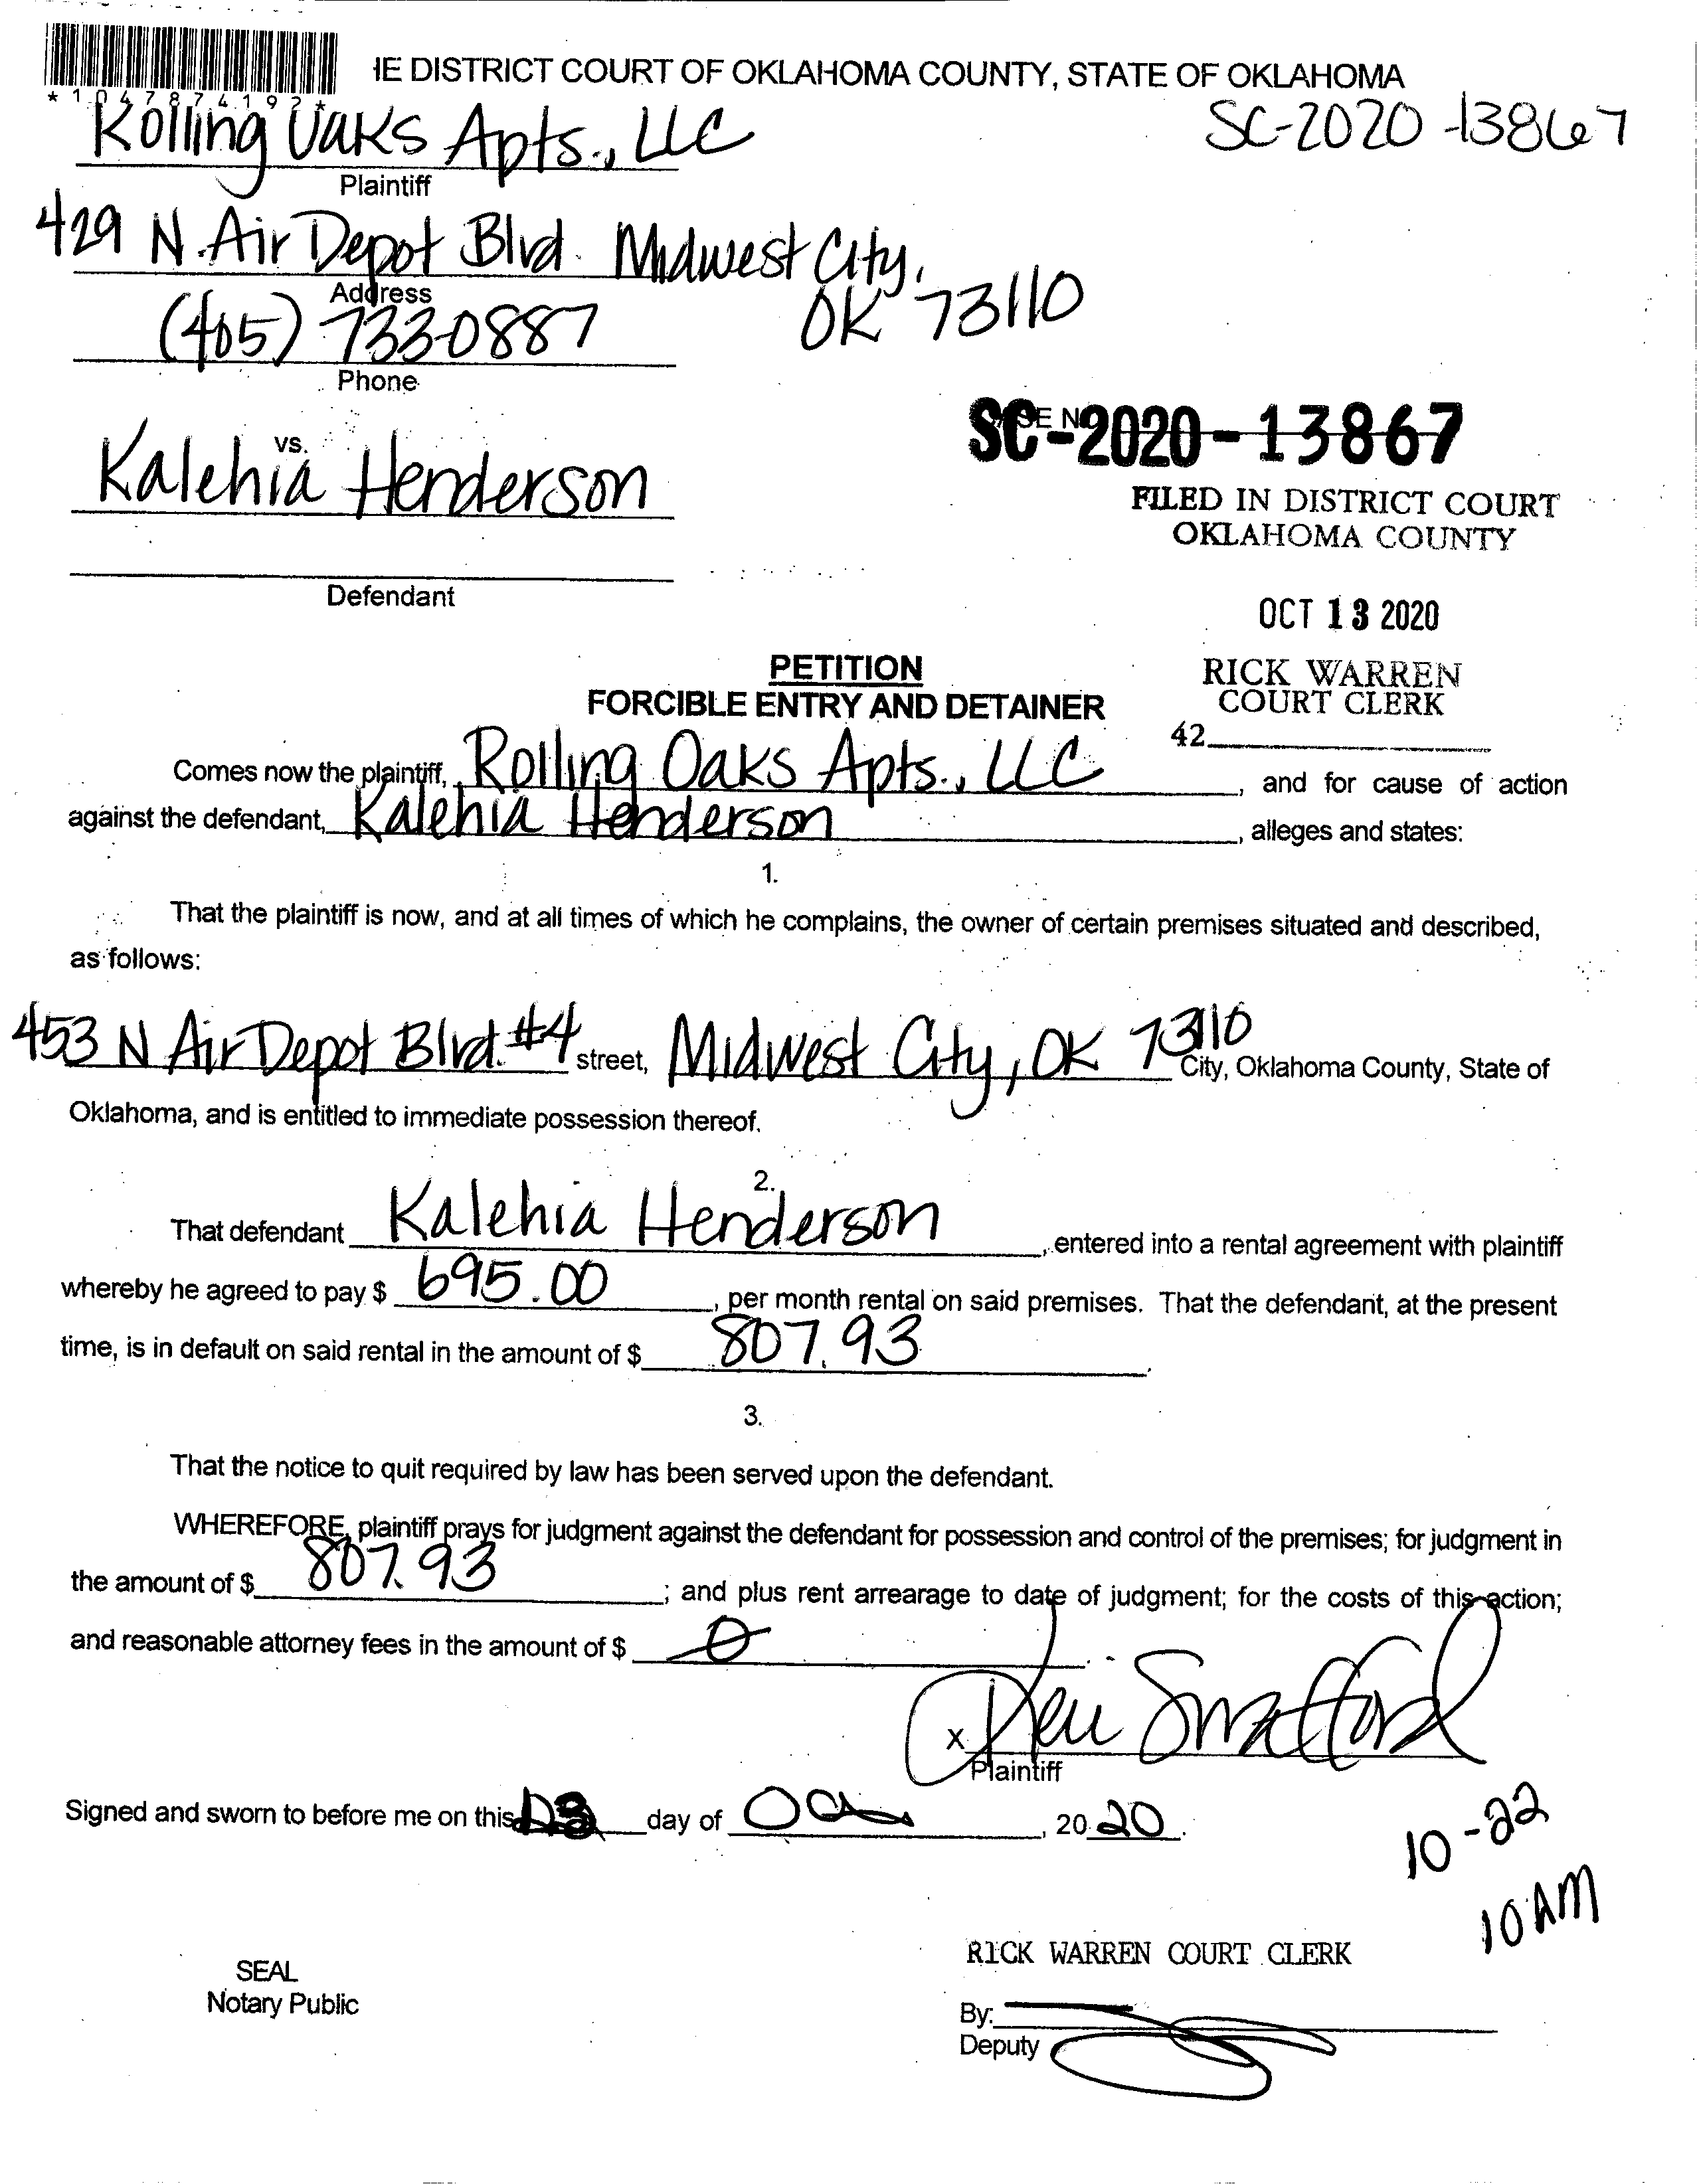 IE DISTRICT COURT OF OKLAHOMA COUNTY, STATE OF OKLAHOMA
* 1 0 4 7 8 7 4 1 9 2 *
SC-2020-13867
Rolling Oaks Apts., LLC
Plaintiff
429 N. Air Depot Blvd. Midwest City,
OK 73110
Address
(405) 733-0887
Phone
vs.
Kalehia Henderson
SC-2020-13867
FILED IN DISTRICT COURT
OKLAHOMA COUNTY
Defendant
OCT 13 2020
PETITION
FORCIBLE ENTRY AND DETAINER
RICK WARREN
COURT CLERK
42
Comes now the plaintiff, Rolling Oaks Apts., LLC, and for cause of action
against the defendant, Kalehia Henderson, alleges and states:
1.
That the plaintiff is now, and at all times of which he complains, the owner of certain premises situated and described,
as follows:
453 N Air Depot Blvd. #4 street, Midwest City, OK 73110 City, Oklahoma County, State of
Oklahoma, and is entitled to immediate possession thereof.
2.
That defendant Kalehia Henderson, entered into a rental agreement with plaintiff
whereby he agreed to pay $ 695.00, per month rental on said premises. That the defendant, at the present
time, is in default on said rental in the amount of $ 807.93.
3.
That the notice to quit required by law has been served upon the defendant.
WHEREFORE, plaintiff prays for judgment against the defendant for possession and control of the premises; for judgment in
the amount of $ 807.93; and plus rent arrearage to date of judgment; for the costs of this action;
and reasonable attorney fees in the amount of $ 0.
X
Plaintiff
Signed and sworn to before me on this day of 20 20.
10-22
10 AM
RICK WARREN COURT CLERK
SEAL
Notary Public
By:
Deputy